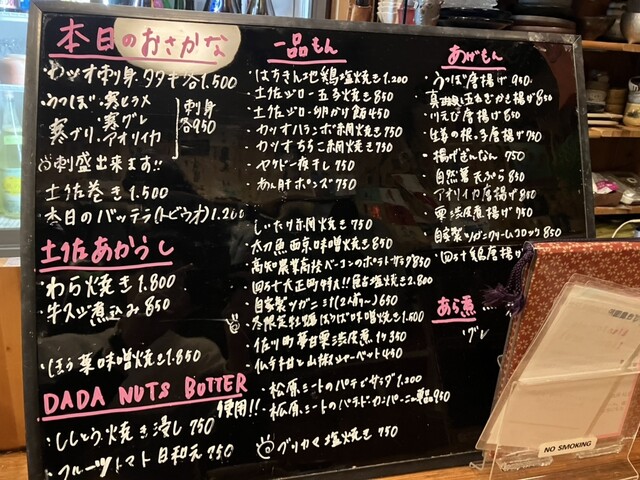 本日のおさかな
カツオ刺身・タタキ各1.500
うつぼ・寒ヒラメ
寒グレ
寒ブリ・アオリイカ
刺身
各950
刺盛出来ます!!
土佐巻き 1.500
本日のバッテラ(トビウオ)1.200
土佐あかうし
・わら焼き 1.800
・牛スジ煮込み 850
・ほう葉味噌焼き 1.850
DADA NUTS BUTTER
使用!!
・ししとう焼き浸し 750
・フルーツトマト日和え 750
一品もん
・はちきん地鶏塩焼き 1.200
・土佐ジロー玉子焼き 850
・土佐ジロー卵かけ飯 450
・カツオハランボ網焼き 750
・カツオちちこ網焼き 750
・ヤケド一夜干し 750
・あん肝ポンズ 750
・しいたけ網焼き 750
・太刀魚西京味噌焼き 850
・高知農業高校ベーコンのポテトサラダ 850
・四万十大正町特大!!鮎塩焼き 2.800
・自家製ツガニ汁 650
・冬限定牡蠣ほうば味噌焼き 1.500
・佐川町 栗渋皮煮 350
・仏手柑と山椒シャーベット 450
・松原ミートのパテドサラダ 1.200
・松原ミートのパテドカンパーニュ単品 950
ブリカマ塩焼き 750
あげもん
・うつぼ唐揚げ 950
・川えび唐揚げ 850
・揚げぎんなん 750
・自然薯天ぷら 850
・アオリイカ唐揚げ 850
・栗渋皮唐揚げ 950
・自家製ツガニクリームコロッケ 850
・四万十鶏唐揚げ
あら煮
グレ
NO SMOKING